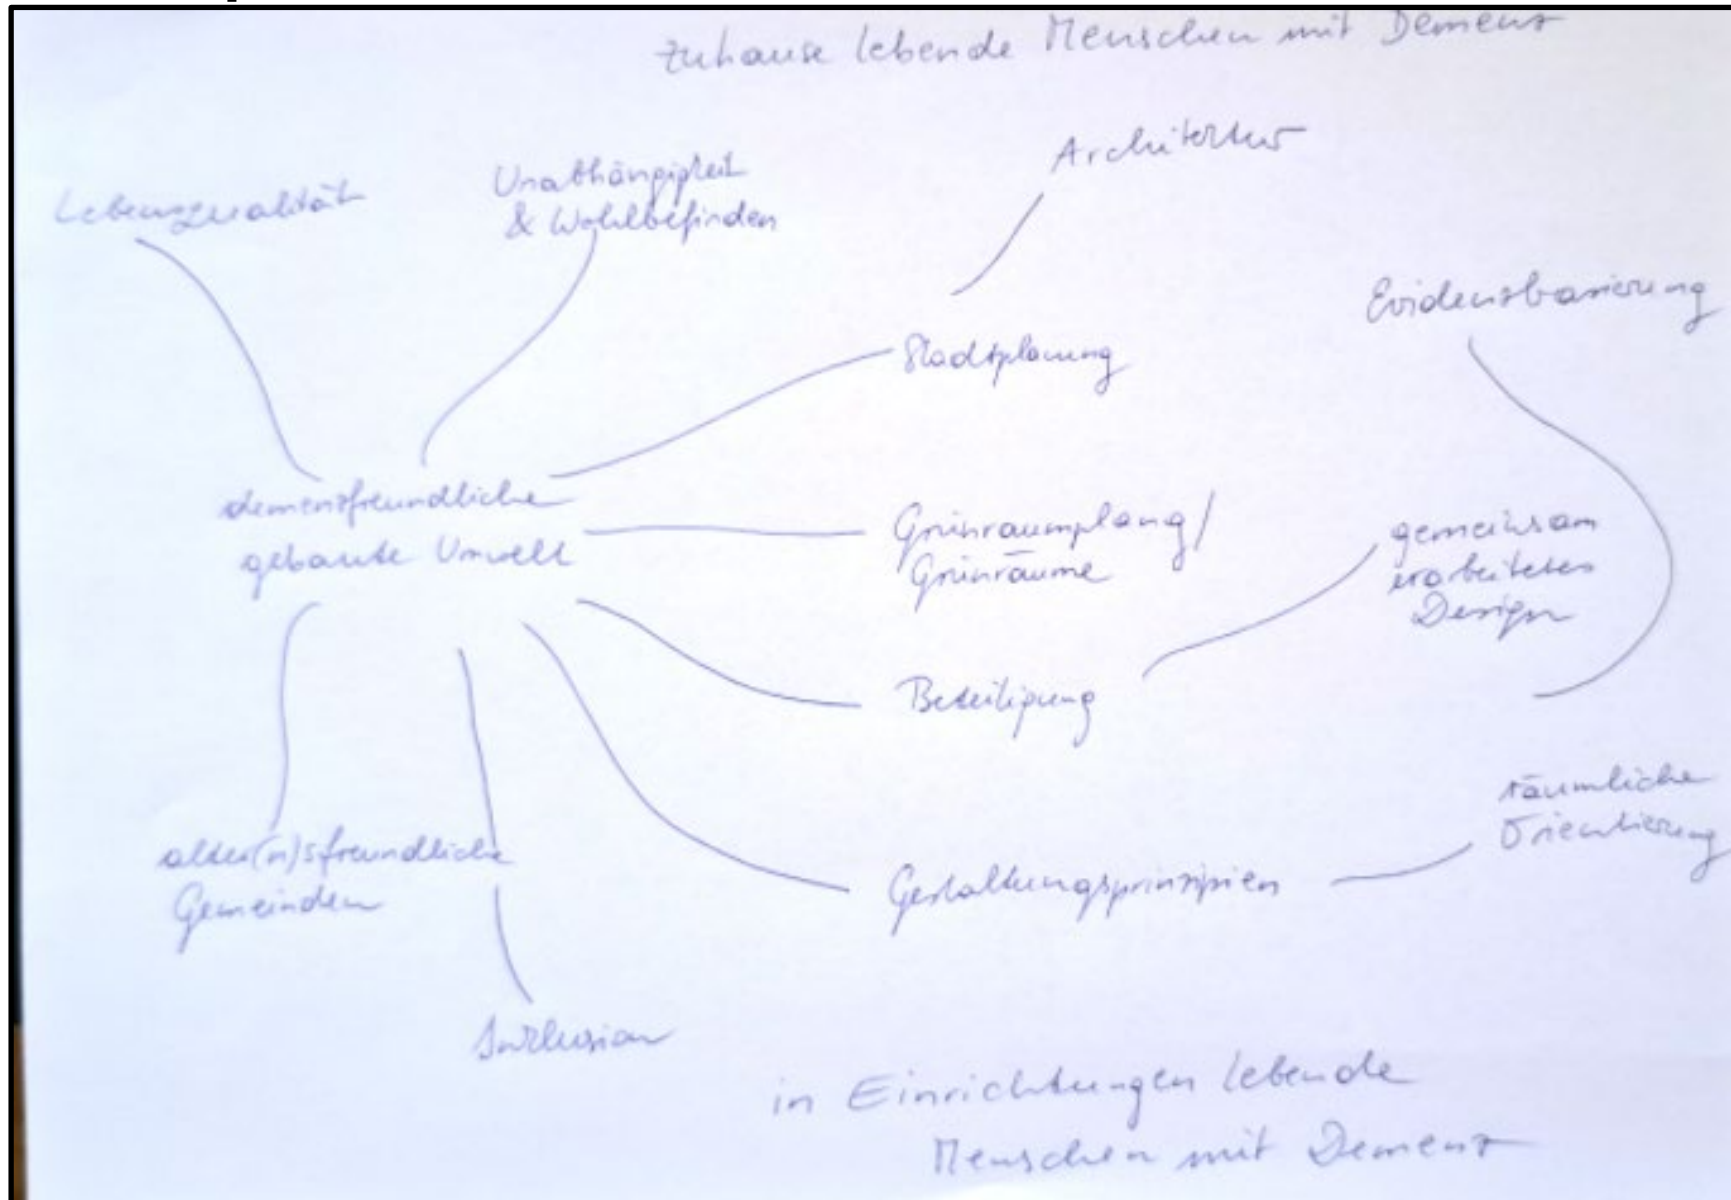 zuhause lebende Menschen mit Demenz
Architektur
Unabhängigkeit
& Wohlbefinden
Lebensqualität
Evidenzbasierung
Stadtplanung
demenzfreundliche
gebaute Umwelt
Grünraumplang/
Grünräume
gemeinsam
erarbeitetes
Design
Beteiligung
räumliche
Orientierung
alter(n)sfreundliche
Gemeinden
Gestaltungsprinzipien
Inklusion
in Einrichtungen lebende
Menschen mit Demenz